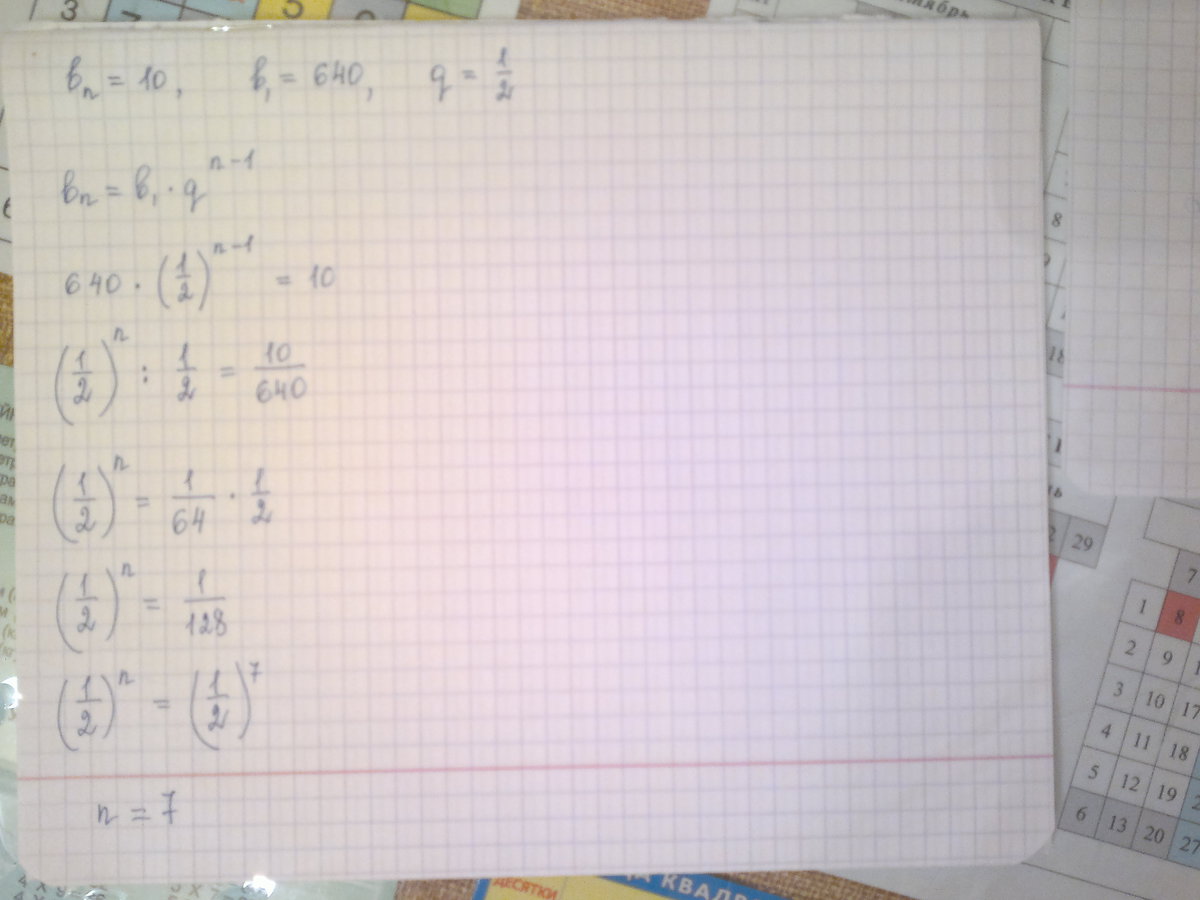 bₙ = 10, b₁ = 640, q = 1/2
bₙ = b₁ · q^(n-1)
640 · (1/2)^(n-1) = 10
(1/2)^n : 1/2 = 10/640
(1/2)^n = 1/64 · 1/2
(1/2)^n = 1/128
(1/2)^n = (1/2)^7
n = 7
3
29
7
1 8
2 9
3 10 17
4 11 18
5 12 19
6 13 20 27
8
18
ДЕСЯТКИ